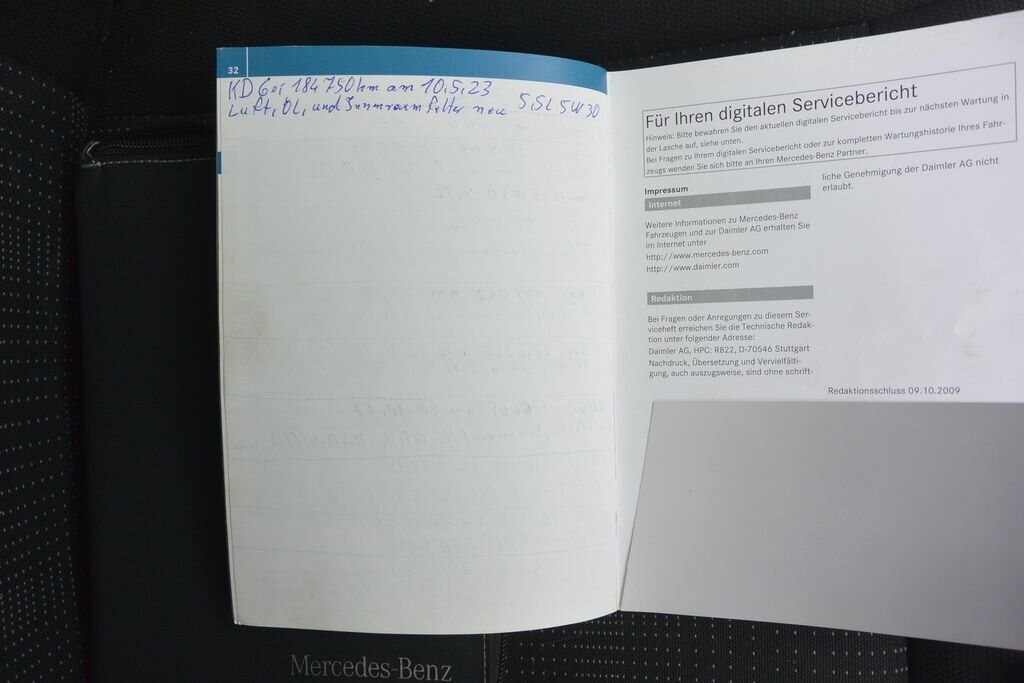 32
KD bei 184750km am 10.5.23
Luft, Öl, und Innenraum filter neu 5,5L 5W30
Für Ihren digitalen Servicebericht
Hinweis: Bitte bewahren Sie den aktuellen digitalen Servicebericht bis zur nächsten Wartung in
der Lasche auf, siehe unten.
Bei Fragen zu Ihrem digitalen Servicebericht oder zur kompletten Wartungshistorie Ihres Fahr-
zeugs wenden Sie sich bitte an Ihren Mercedes-Benz Partner.
Impressum
Internet
Weitere Informationen zu Mercedes-Benz
Fahrzeugen und zur Daimler AG erhalten Sie
im Internet unter
http://www.mercedes-benz.com
http://www.daimler.com
Redaktion
Bei Fragen oder Anregungen zu diesem Ser-
viceheft erreichen Sie die Technische Redak-
tion unter folgender Adresse:
Daimler AG, HPC: R822, D-70546 Stuttgart
Nachdruck, Übersetzung und Vervielfälti-
gung, auch auszugsweise, sind ohne schrift-
liche Genehmigung der Daimler AG nicht
erlaubt.
Redaktionsschluss 09.10.2009
Mercedes-Benz